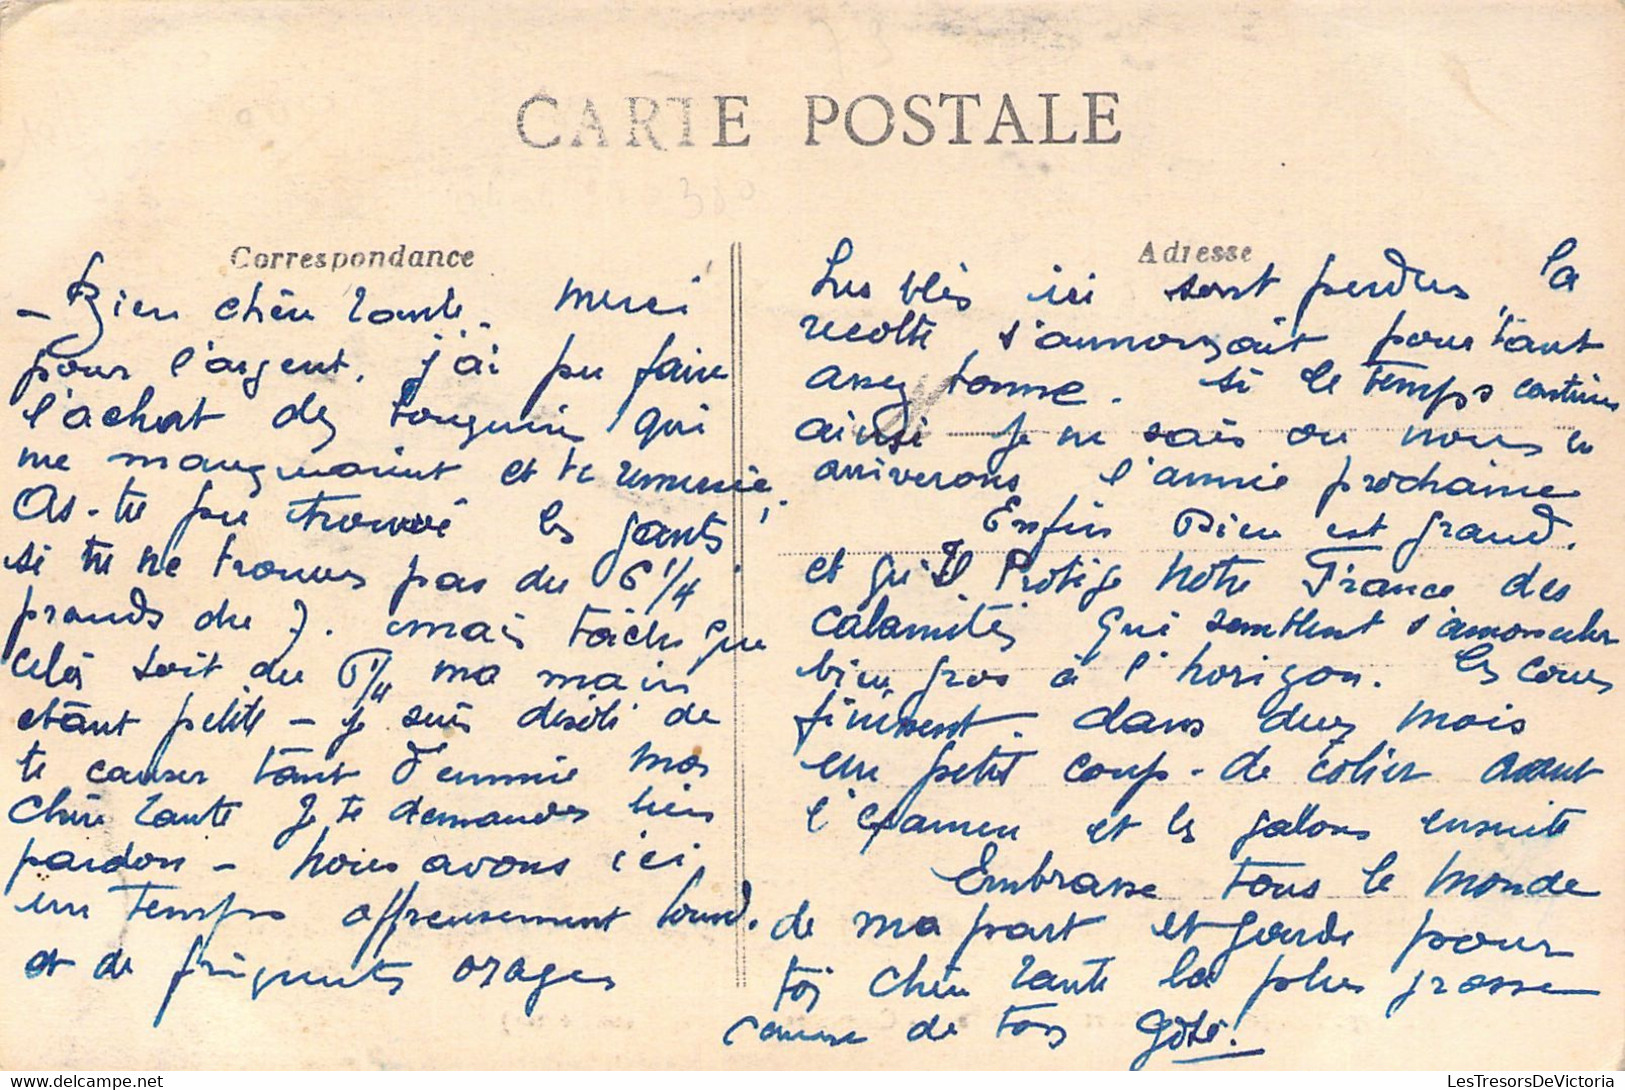 CARTE POSTALE
380
Correspondance
- Bien chère Tante. Merci
pour l'argent. j'ai pu faire
l'achat des bouquins qui
me manquaient et te remercie.
As-tu pu trouvé les gants,
si tu ne trouves pas du 6 1/4
prends du 7. mais tâche que
celà soit du 6 1/4 ma main
étant petite - je suis désolé de
te causer tant d'ennuie ma
chère Tante je te demandes bien
pardon - Nous avons ici
un temps affreusement lourd.
et de fréquents orages
Adresse
Les blés ici sont perdus, la
récolte s'annonçait pourtant
assez bonne. si le temps continue
ainsi je ne sais ou nous en
arriverons l'année prochaine
Enfin Dieu est grand.
et qu'Il Protège notre France des
calamités qui semblent s'amonceler
bien gros à l'horizon. les cours
finissent. dans deux mois
un petit coup de colier avant
l'examen et les galons ensuite
Embrasse tous le monde
de ma part et garde pour
toi chère Tante la plus grosse
de ton
LesTresorsDeVictoria